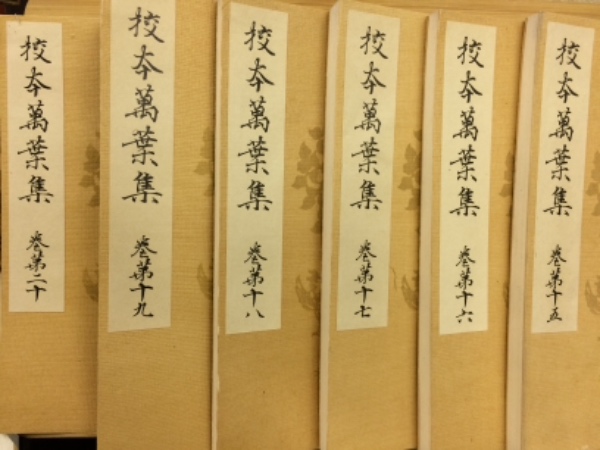 校本萬葉集 卷第十五
校本萬葉集 卷第十六
校本萬葉集 卷第十七
校本萬葉集 卷第十八
校本萬葉集 卷第十九
校本萬葉集 卷第二十